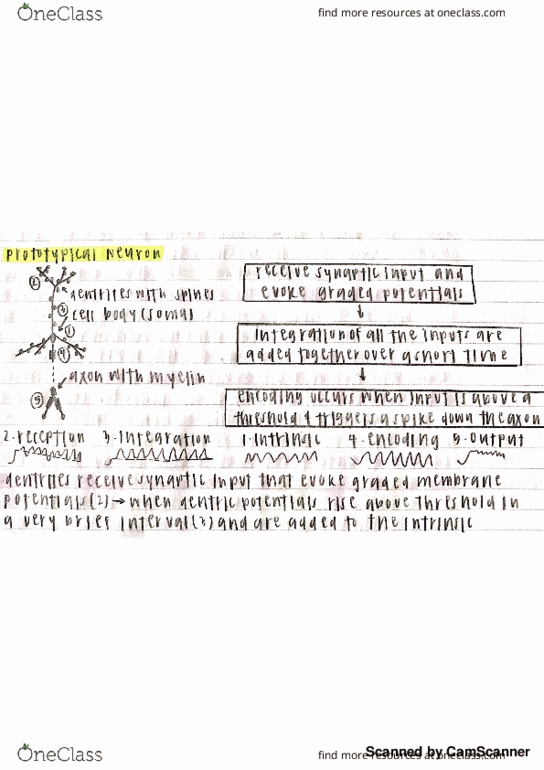 OneClass
find more resources at oneclass.com
prototypical neuron
② dentrites with spines
③ cell body (soma)
①
④
axon with myelin
⑤
receive synaptic input and
evoke graded potentials
↓
integration of all the inputs are
added together over a short time
↓
encoding occurs when input is above a
threshold & triggers a spike down the axon
2. reception 3. integration 1. intrinsic 4. encoding 5. output
dentrites receive synaptic input that evoke graded membrane
potentials (2) → when dentric potentials rise above threshold in
a very brief interval (3) and are added to the intrinsic
OneClass
find more resources at oneclass.com
Scanned by CamScanner